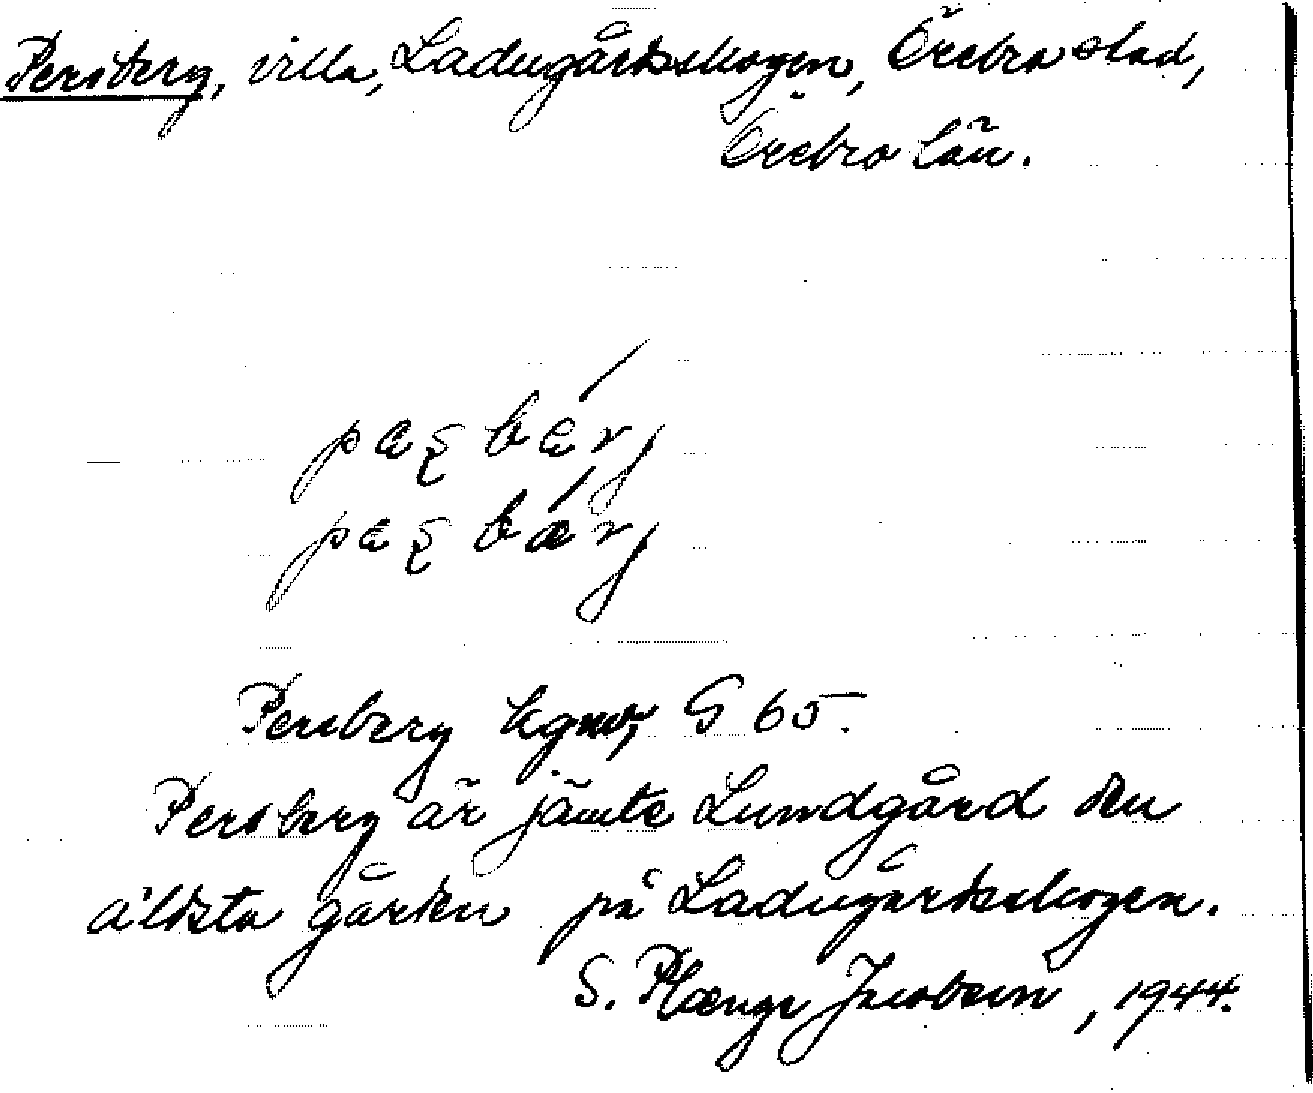 Persberg, villa, Ladugårdsskogen, Örebro stad,
Örebro län.
pæʂbǽrj
pæʂbærj
Persberg G 65.
Persberg är jämte Lundgård den
äldsta gården på Ladugårdsskogen.
S. Plænge Jacobson, 1944.